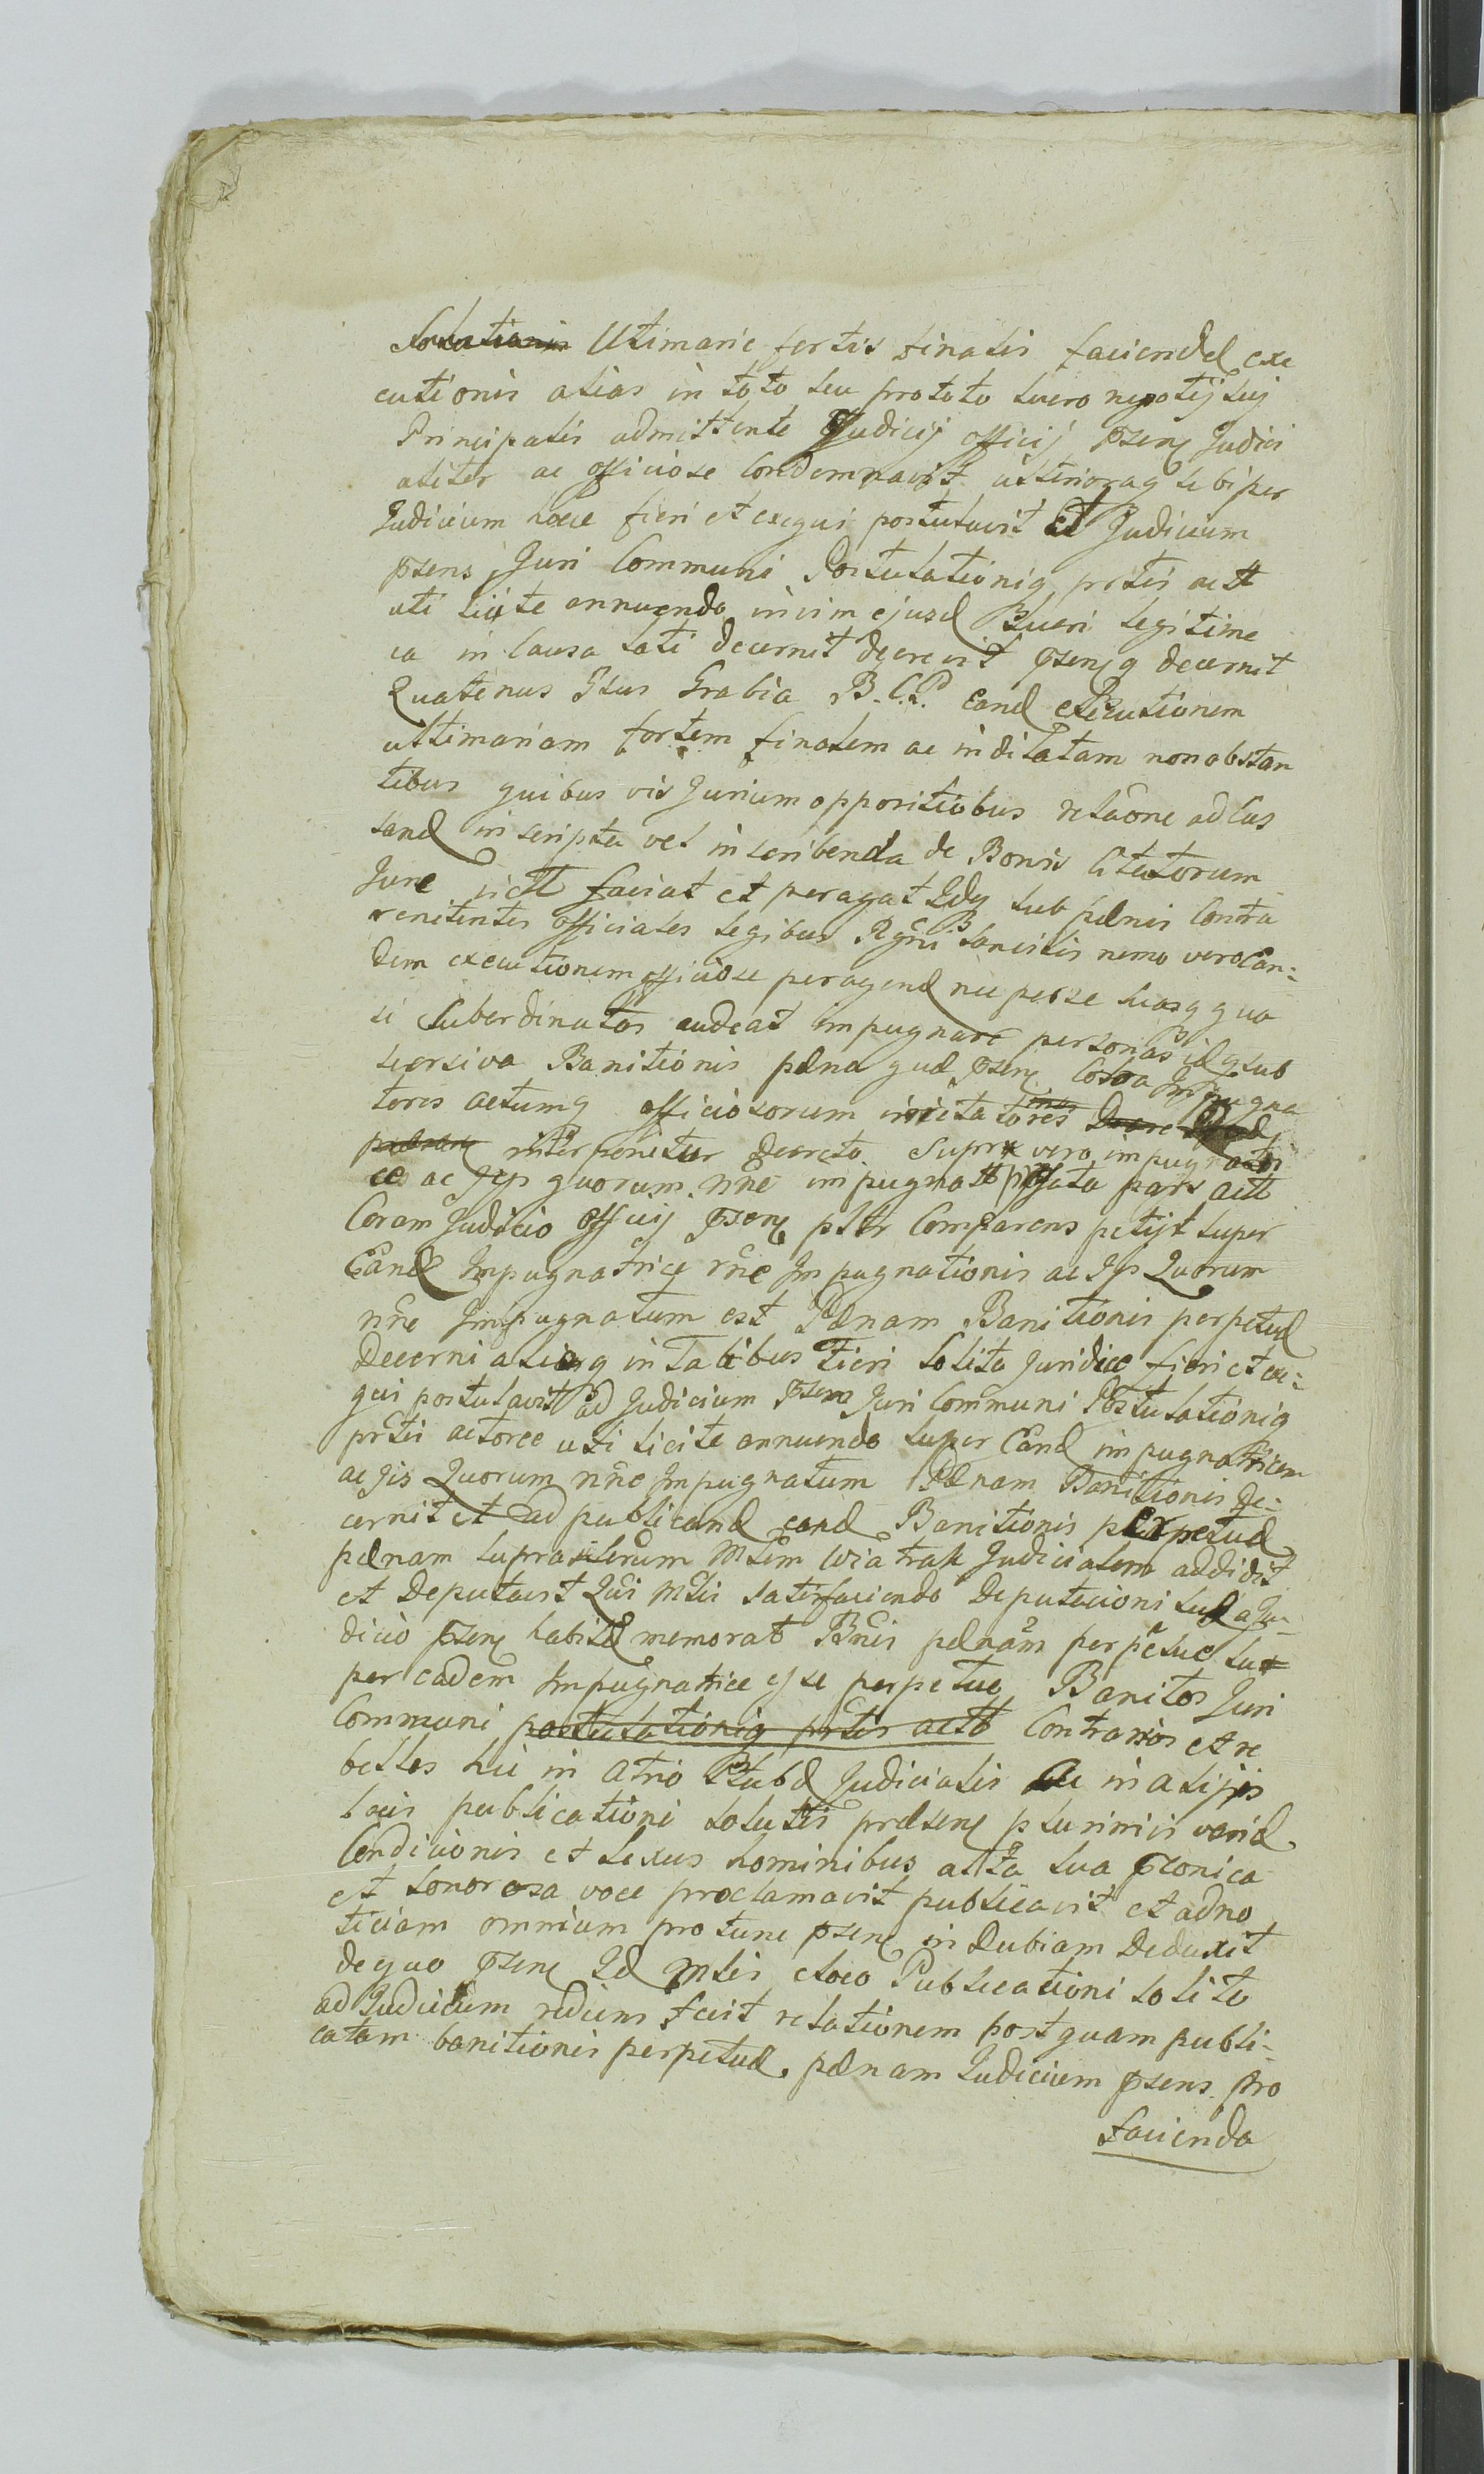 Ultimarie sortis finalis faciendæ exe
cutionis alias in toto seu pro toto lucro negotij sui
Principalis admittente Judicij officij psenę Judici
aliter ac officiose Condemnavit ulteriorag sibi per
Judicium hocce fieri et exequi postulavit Et Judicium
psens Juri Communi Postulationiq prtis actt
uti licite annuendo in vim ejusd lucri legitime
ea in Causa lati decernit decrevit psenę decernit
Quatenus Gsus Grabia B. C. P. eand executionem
ultimariam sortem finalem ac indilatam non obstan
tibus quibus vis Jurium oppositiobus relaõne ad Cas
sand inscripta vel inscribenda de Bonis Citatorum
Jure victt faciat et peragat Idq sub pænis Contra
renitentes officiales legibus Regni sancitis nemo vero Ean=
dem executionem officiose peragend nec per se suasq qua
si Subordinatas audeat impugnare personas idq sub
seorsiva Banitionis pæna quæ psenę Contra Impugna
tores actumq officiosorum
interponitur decreto Supra vero impugnatri
ce ac Jis quorum nñe impugnatt pars actt
Coram Judicio officij psenę pltr Comparens petijt super
Eand Impugnatricę rñe Impugnationis ac Jis Quorum
nñe Impugnatum est Pænam Banitionis perpetuæ
Decerni aliaq in talibus fieri solita Juridice fieri et ex=
qui postulavit ad Judicium psens Juri Communi Postulationiq
prtis actoreæ uti licite annuendo super Eand impugnatricem
ac Jis Quorum nñe Impugnatum Pænam Banitionis De=
cernit et ad publicand eand Banitionis perpetuæ
pænam suprascriptum Mlem Wiatrak Judicialem addidit
et Deputavit Qui Mlis satisfaciendo Deputacioni suæ a Ju=
dicio psenę habitæ memorat Bnis pænam perpetuæ su
per eadem Impugnatrice ejse perpetue Banitos Juri
Communi postulationiq prtis actt Contrarios et re
belles hic in atrio Stubæ Judicialis ac in alijs
locis publicationi solutis præsenę plurimis variæ
Condicionis et sexus hominibus alta sua pconica
et sonorosa voce proclamavit publicavit et ad no
ticiam omnium pro tunc psenę in dubiam Deduxit
de quo psenę Id Mlis e loco Publicationi solito
ad Judicium rediens fecit relationem post quam publi=
catam banitionis perpetuæ pænam Judicium psens pro
facienda